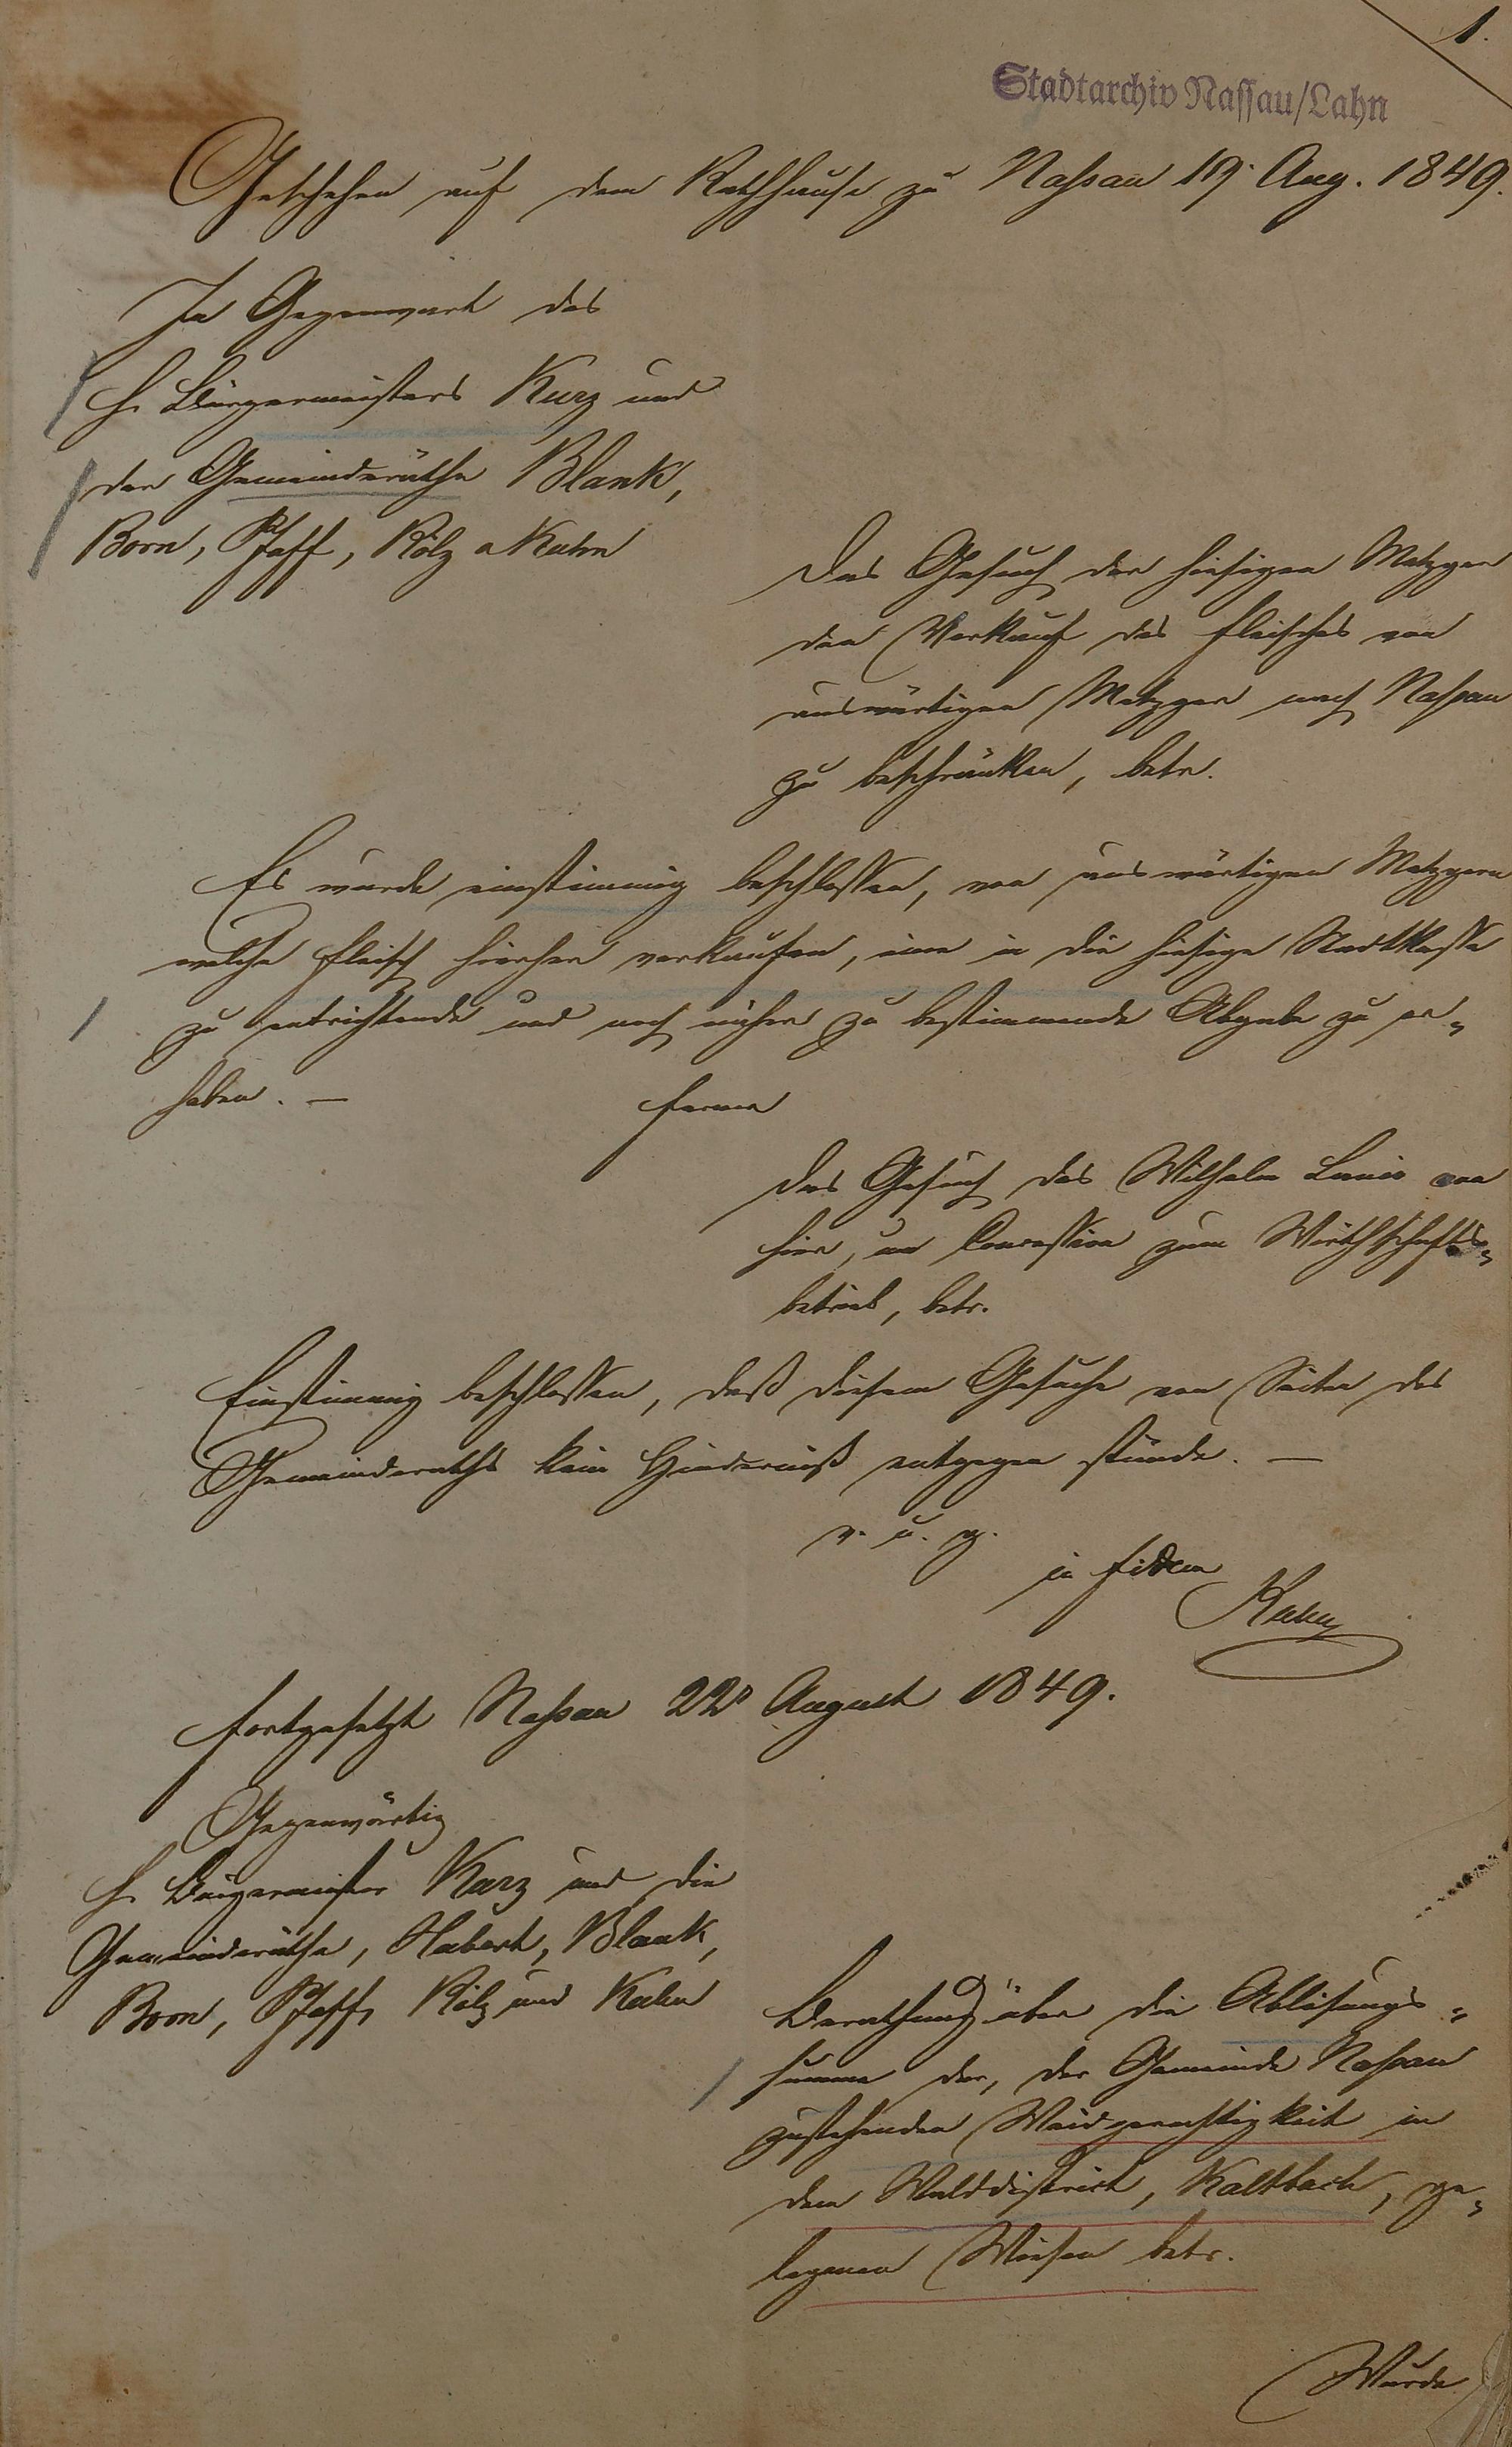 1.
Stadtarchiv Nassau/Lahn
Geschehen auf dem Rathhause zu Nassau 19. Aug. 1849.
In Gegenwart des
H. Bürgermeisters Kurz und
der Gemeinderäthe Blank,
Born, Pfaff, Rölz u Kuhn
Das Gesuch der hiesigen Metzger
den Verkauf des Fleisches von
auswärtigen Metzger nach Nassau
zu beschränken, betr.
Es wurde einstimmig beschlossen, von auswärtigen Metzgern
welche Fleisch hierher verkaufen, eine in die hiesige Stadtkasse
zu entrichtende und noch näher zu bestimmende Abgabe zu er-
heben. —
ferner
Das Gesuch des Wilhelm von
hier, um Concession zum Wirthschafts-
betrieb, betr.
Einstimmig beschlossen, daß diesem Gesuche von Seiten des
Gemeinderaths kein Hinderniß entgegen stünde. —
v. u. g.
in fidem
fortgesetzt Nassau 22r August 1849.
Gegenwärtig
H. Bürgermeister Kurz und die
Gemeinderäthe, Hubert, Blank,
Born, Pfaff, Rölz und Kuhn
Berathung über die Ablösungs-
summe der, der Gemeinde Nassau
zustehenden Waidgerechtigkeit in
dem Walddistrict, Kaltbach, ge-
legenen Wiesen betr.
Wurde